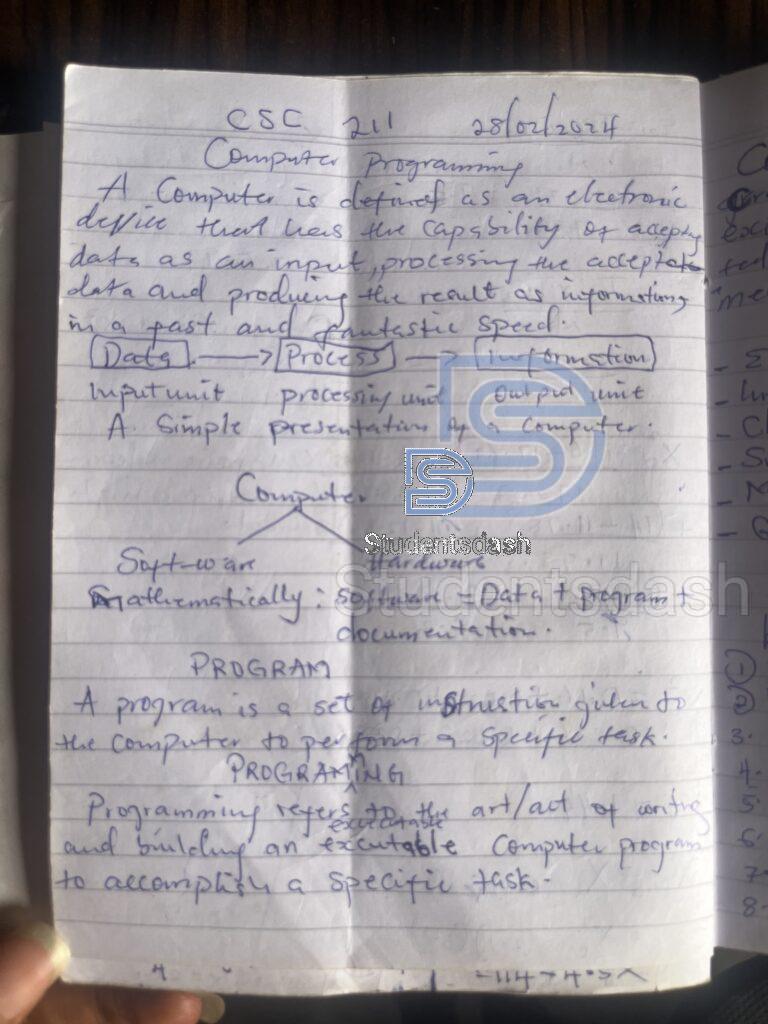 CSC 211 28/02/2024
Computer Programming
A Computer is defined as an electronic
device that has the capability of accepting
data as an input, processing the accepted
data and producing the result as information
in a fast and fantastic speed.
Data Process Information
Input unit processing unit output unit
A Simple presentation of a computer.
Computer
Studentsdash
Soft-ware Hardware
Studentsdash
Mathematically: software = Data + program +
documentation.
PROGRAM
A program is a set of instruction given to
the computer to perform a specific task.
PROGRAMMING
Programming refers to the art/act of writing
executable
and building an executable computer program
to accomplish a specific task.
1
2
3.
4.
5.
6.
7.
8.